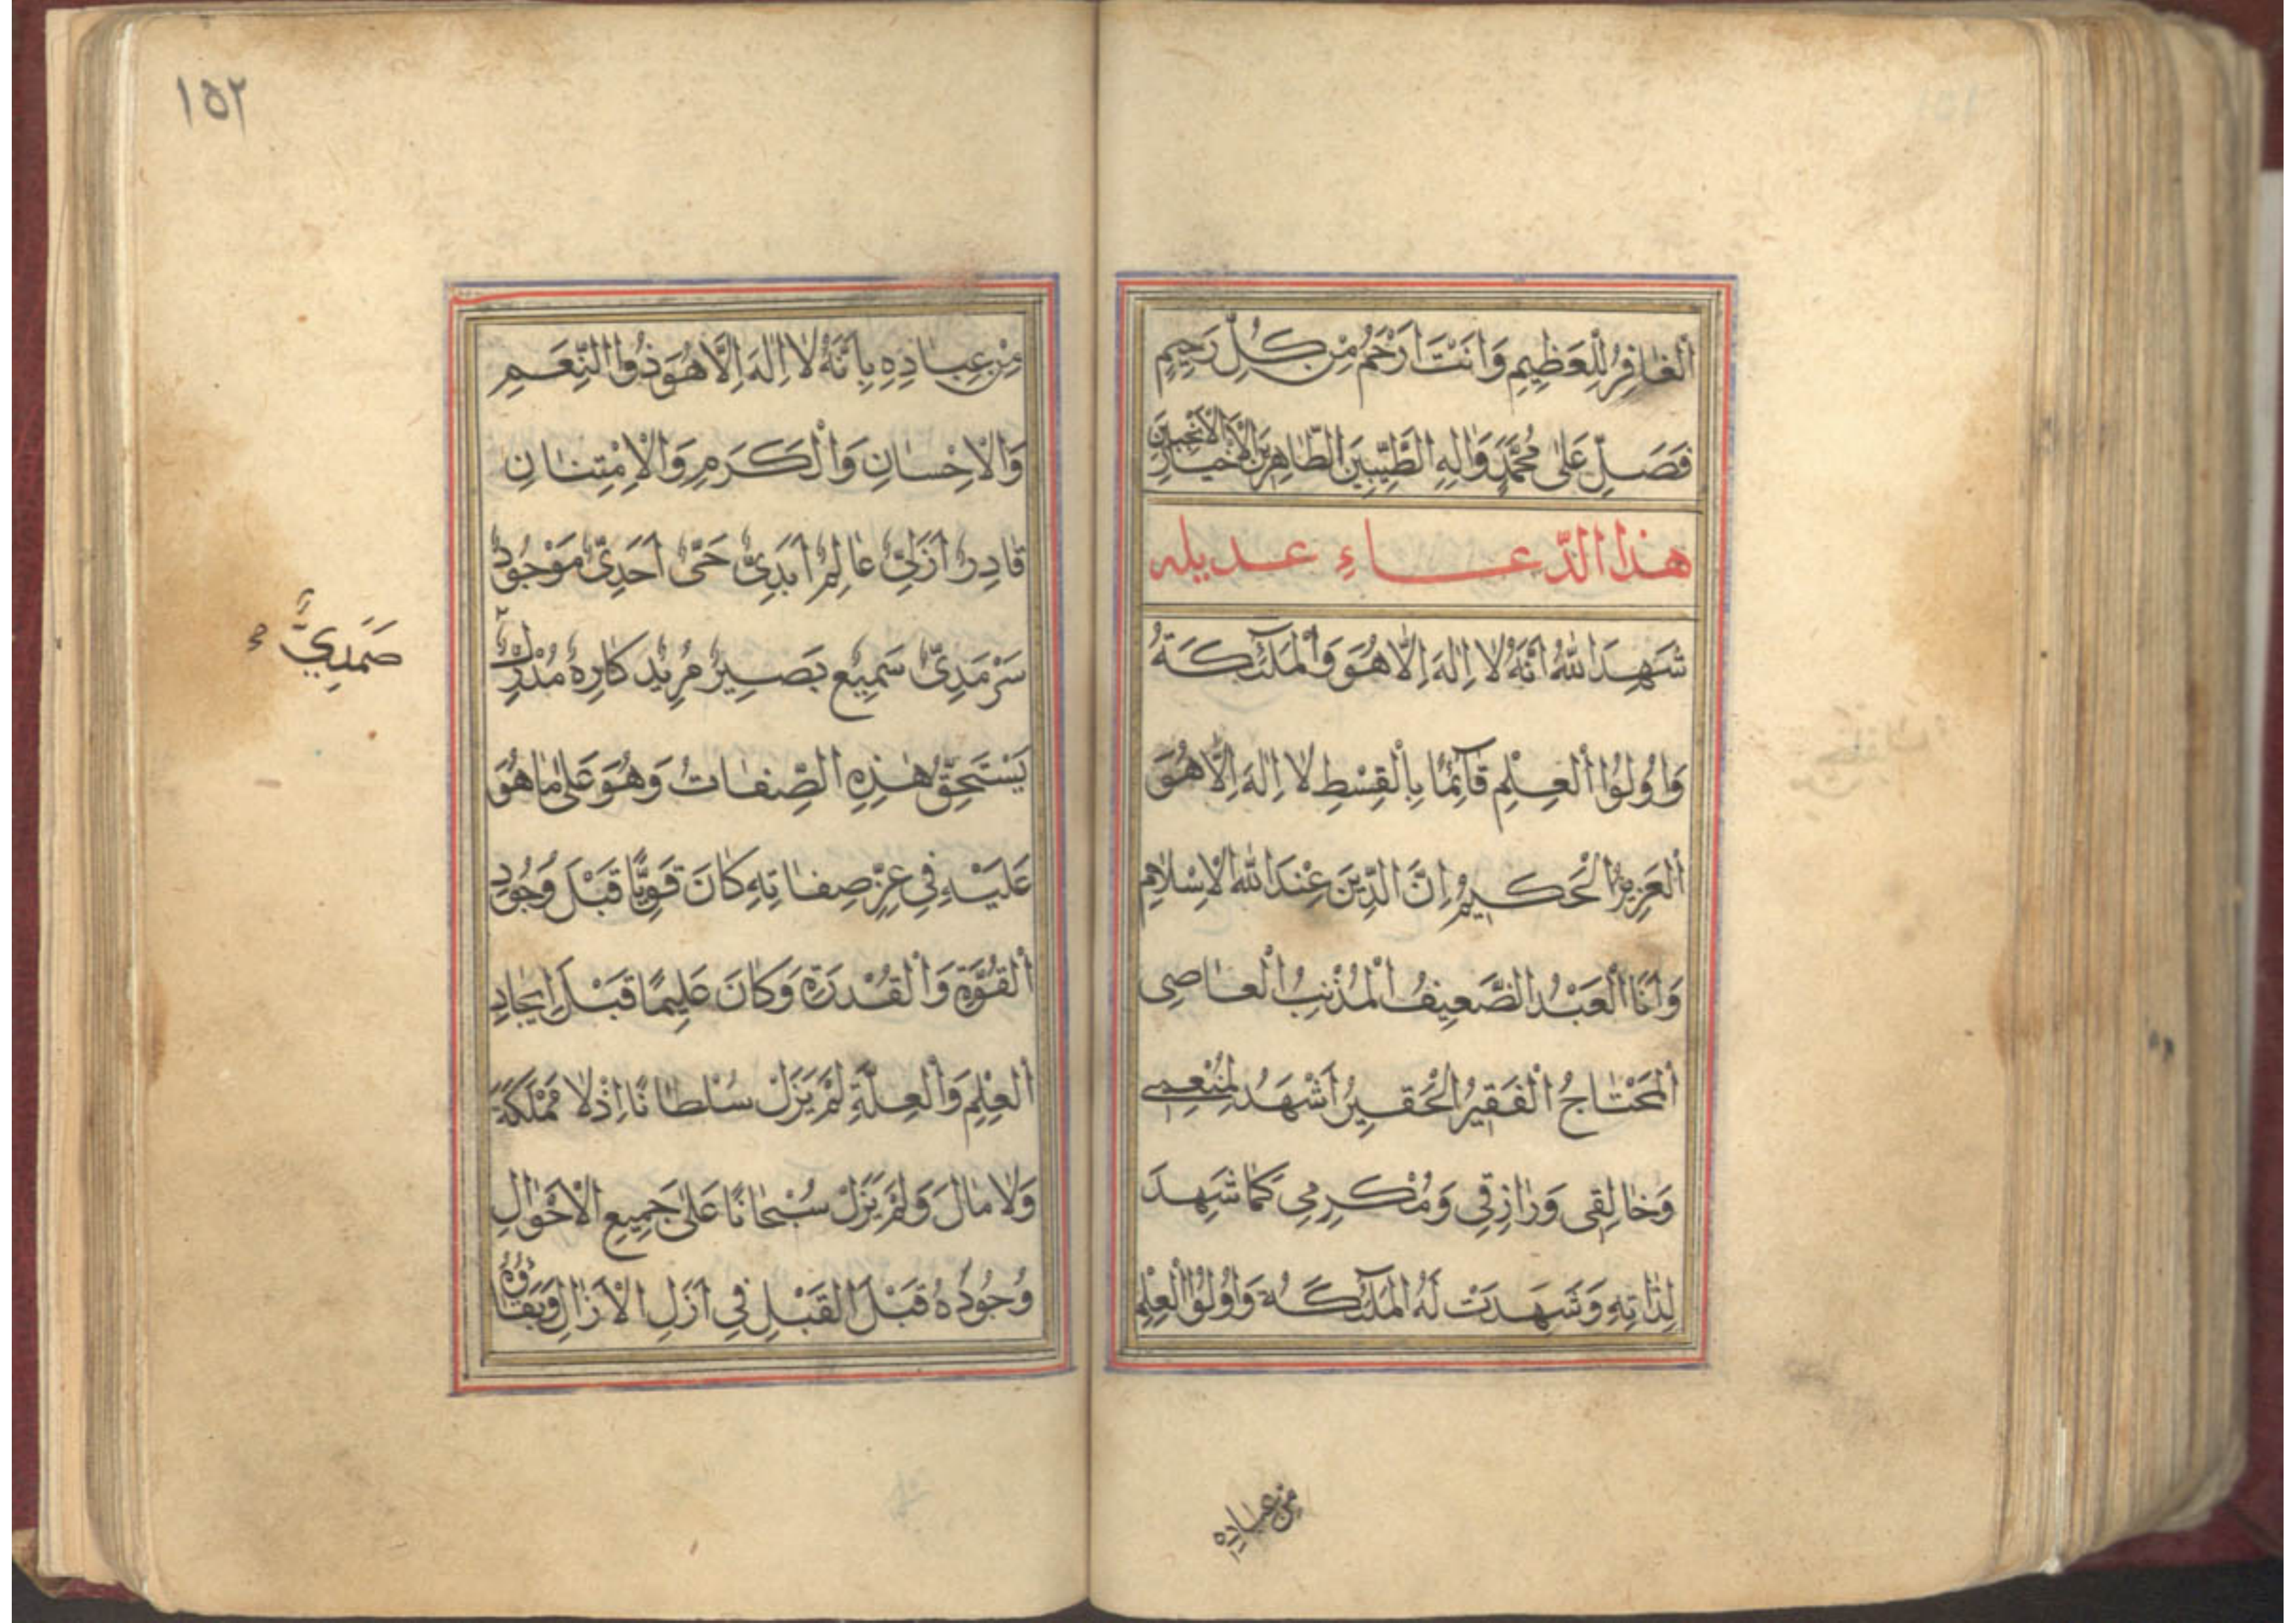 اَلْغافِرُ لِلْعَظِيمِ وَاَنْتَ اَرْحَمُ مِنْ كُلِّ رَحِيمٍ
فَصَلِّ عَلىٰ مُحَمَّدٍ وَاٰلِهِ الطَّيِّبِينَ الطّاهِرِينَ الْاَخْيارِ الْاَنْجَبِينَ
هٰذا الدّعاءِ عديله
شَهِدَ اللهُ اَنَّهُ لا اِلٰهَ اِلّا هُوَ وَالْمَلٰٓئِكَةُ
وَاُولُوا الْعِلْمِ قآئِمًا بِالْقِسْطِ لا اِلٰهَ اِلّا هُوَ
اَلْعَزِيزُ الْحَكِيمُ اِنَّ الدِّينَ عِنْدَ اللهِ الْاِسْلامِ
وَاَنَا الْعَبْدُ الضَّعِيفُ الْمُذْنِبُ الْعاصِى
اَلْمُحْتاجُ الْفَقِيرُ الْحَقِيرُ اَشْهَدُ لِمُنْعِمِى
وَخالِقِى وَرازِقِى وَمُكْرِمِى كَما شَهِدَ
لِذاتِهِ وَشَهِدَتْ لَهُ الْمَلٰٓئِكَةُ وَاُولُوا الْعِلْمِ
من عباده
١٥٢
مِنْ عِبادِهِ بِاَنَّهُ لا اِلٰهَ اِلّا هُوَ ذُوا النِّعَمِ
وَالْاِحْسانِ وَالْكَرَمِ وَالْاِمْتِنانِ
قادِرٌ اَزَلِىٌّ عالِمٌ اَبَدِىٌّ حَىٌّ اَحَدِىٌّ مَوْجُودٌ
سَرْمَدِىٌّ سَمِيعٌ بَصِيرٌ مُرِيدٌ كارِهٌ مُدْرِكٌ
صَمَدِيٌّ
يَسْتَحِقُّ هٰذِهِ الصِّفاتُ وَهُوَ عَلىٰ ما هُوَ
عَلَيْهِ فِى عِزِّ صِفاتِهِ كانَ قَوِيًّا قَبْلَ وُجُودِ
الْقُوَّةِ وَالْقُدْرَةِ وَكانَ عَلِيمًا قَبْلَ اِيجادِ
الْعِلْمِ وَالْعِلَّةِ لَمْ يَزَلْ سُلْطانًا اِذْ لا مَمْلَكَةَ
وَلا مالَ وَلَمْ يَزَلْ سُبْحانًا عَلىٰ جَمِيعِ الْاَحْوالِ
وُجُودُهُ قَبْلَ الْقَبْلِ فِى اَزَلِ الْاٰزالِ وَبَقاؤُهُ